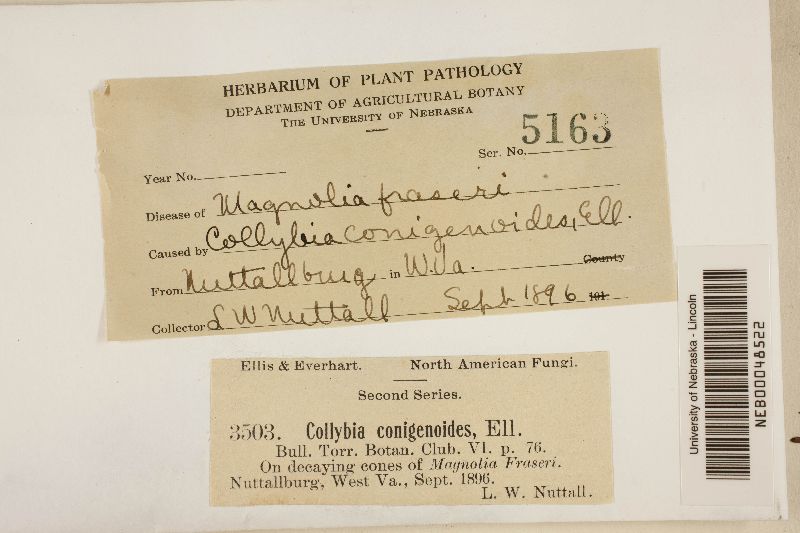 HERBARIUM OF PLANT PATHOLOGY
DEPARTMENT OF AGRICULTURAL BOTANY
THE UNIVERSITY OF NEBRASKA
Ser. No. 5163
Year No.
Disease of Magnolia fraseri
Caused by Collybia conigenoides, Ell.
From Nuttallburg in W. Va. County
Collector L W Nuttall Sept 1896 191
Ellis & Everhart. North American Fungi.
Second Series.
3503. Collybia conigenoides, Ell.
Bull. Torr. Botan. Club. VI. p. 76.
On decaying cones of Magnolia Fraseri.
Nuttallburg, West Va., Sept. 1896.
L. W. Nuttall.
University of Nebraska - Lincoln
NEB00048522